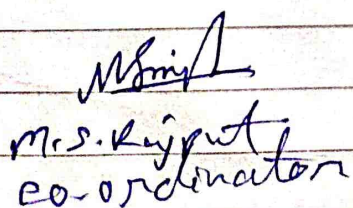 M.S. Rajput
co-ordinator